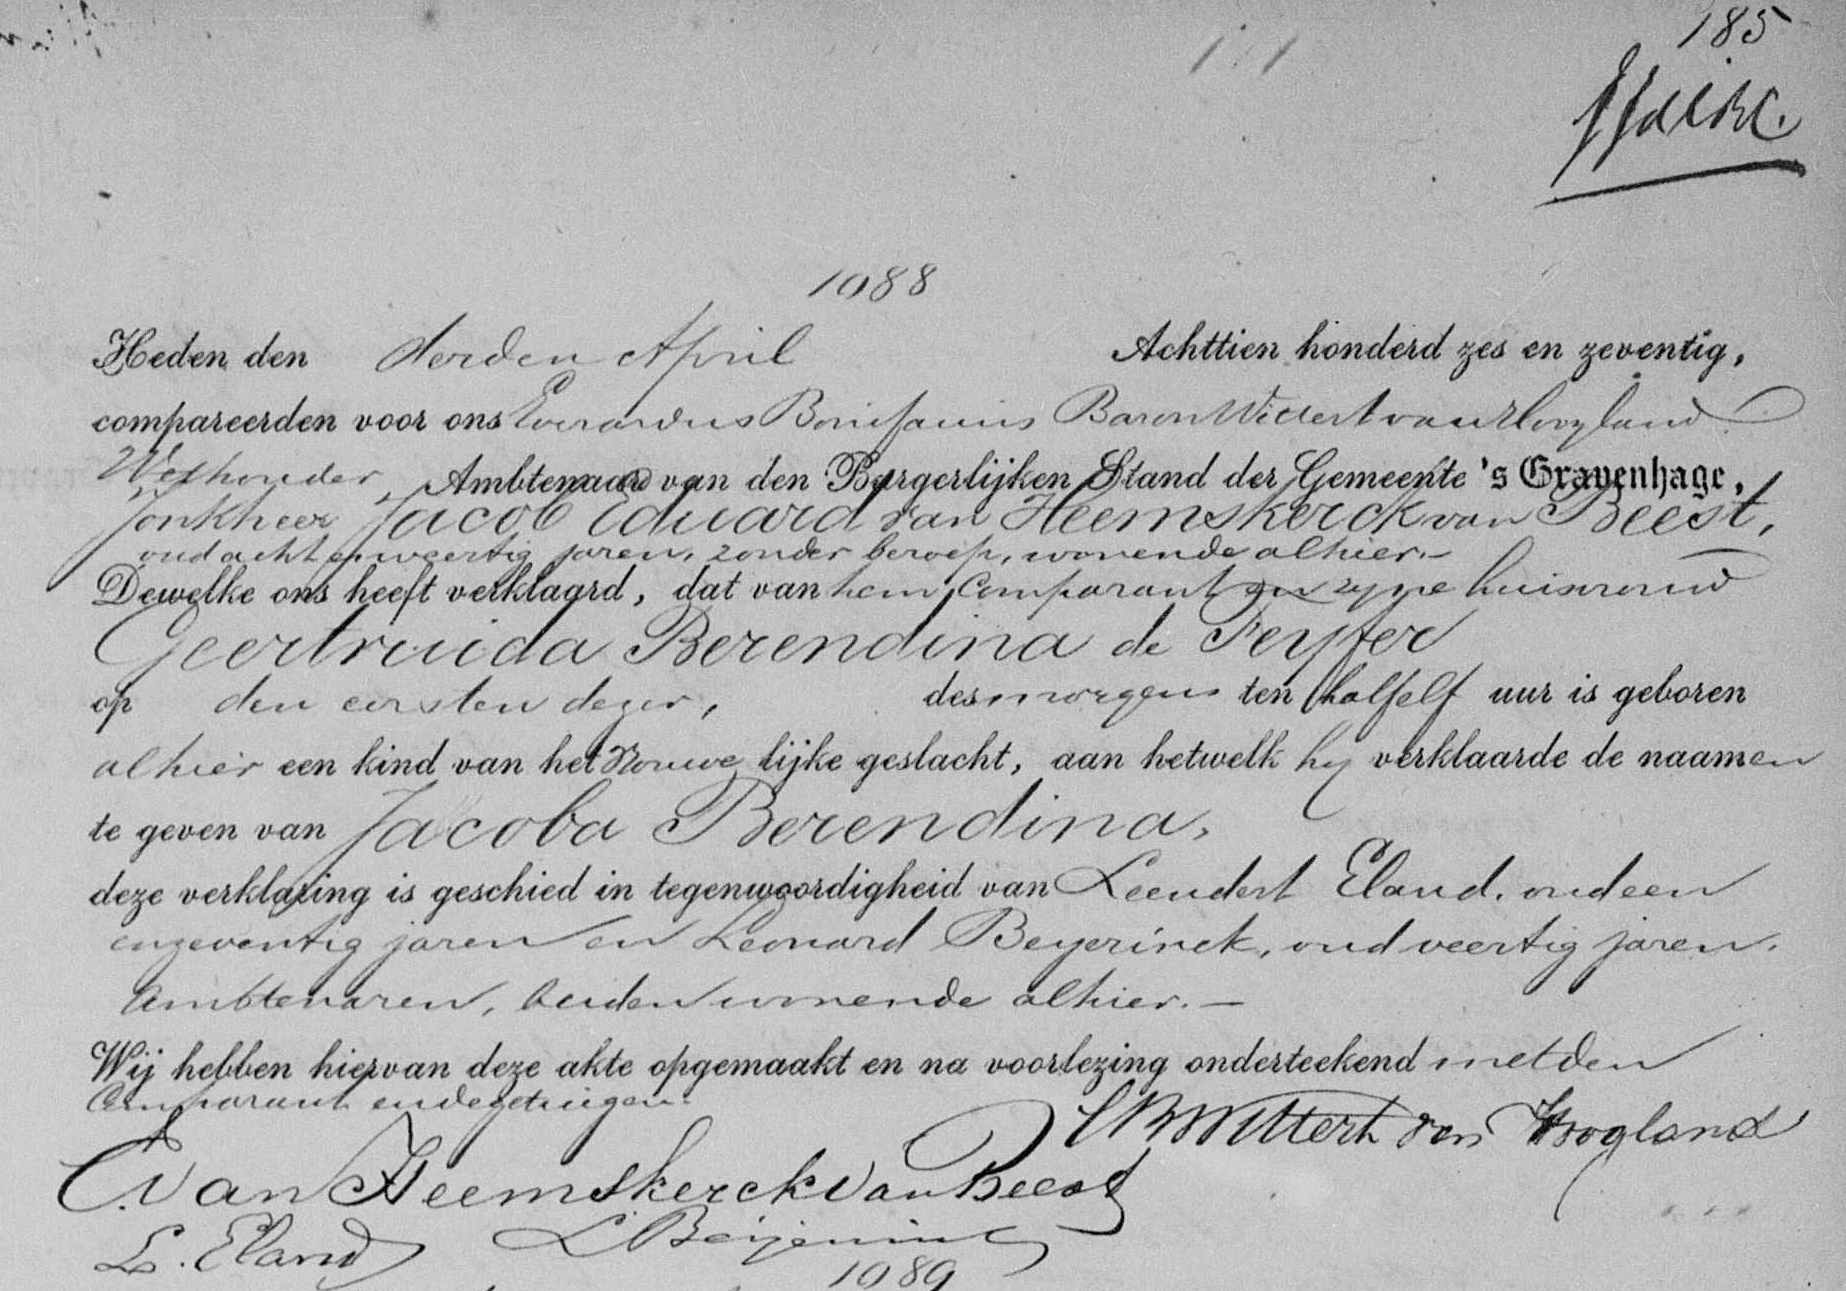 185
1088
Heden den derden April Achttien honderd zes en zeventig,
compareerden voor ons Everardus Bonifacius Baron Wittert van Hoogland
Wethouder, Ambtenaar van den Burgerlijken Stand der Gemeente 's Gravenhage,
Jonkheer Jacob Eduard van Heemskerck van Beest,
oud acht en veertig jaren, zonder beroep, wonende alhier.—
Dewelke ons heeft verklaard, dat van hem Comparant en zyne huisvrouw
Geertruida Berendina de Feyfer
op den eersten dezer, des morgens ten half elf uur is geboren
alhier een kind van het Vrouwe lijke geslacht, aan hetwelk hy verklaarde de naamen
te geven van Jacoba Berendina.
deze verklaring is geschied in tegenwoordigheid van Leendert Eland, oud een
en zeventig jaren en Leonard Beyerinck, oud veertig jaren.
Ambtenaren, beiden wonende alhier.—
Wij hebben hiervan deze akte opgemaakt en na voorlezing onderteekend met den
Comparant en de getuigen.
EBWittert van Hoogland
van Heemskerck van Beest
L. Eland L Beijerinck
1089